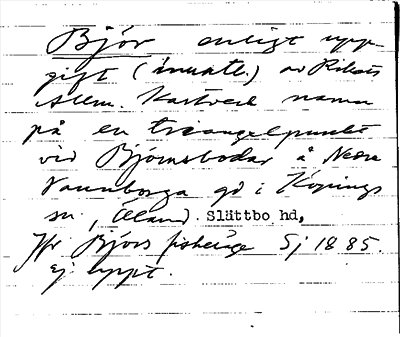 Björ enligt upp-
gift (inuatl.) av Rikets
Allm. Kartverk namn
på en triangelpunkt
vid Björnsbodar å Nedra
Vannborga gd i Köpings
sn, Öland. Slättbo hd,
Jfr Björs fiskeläge Sj 1885.
ej uppt.